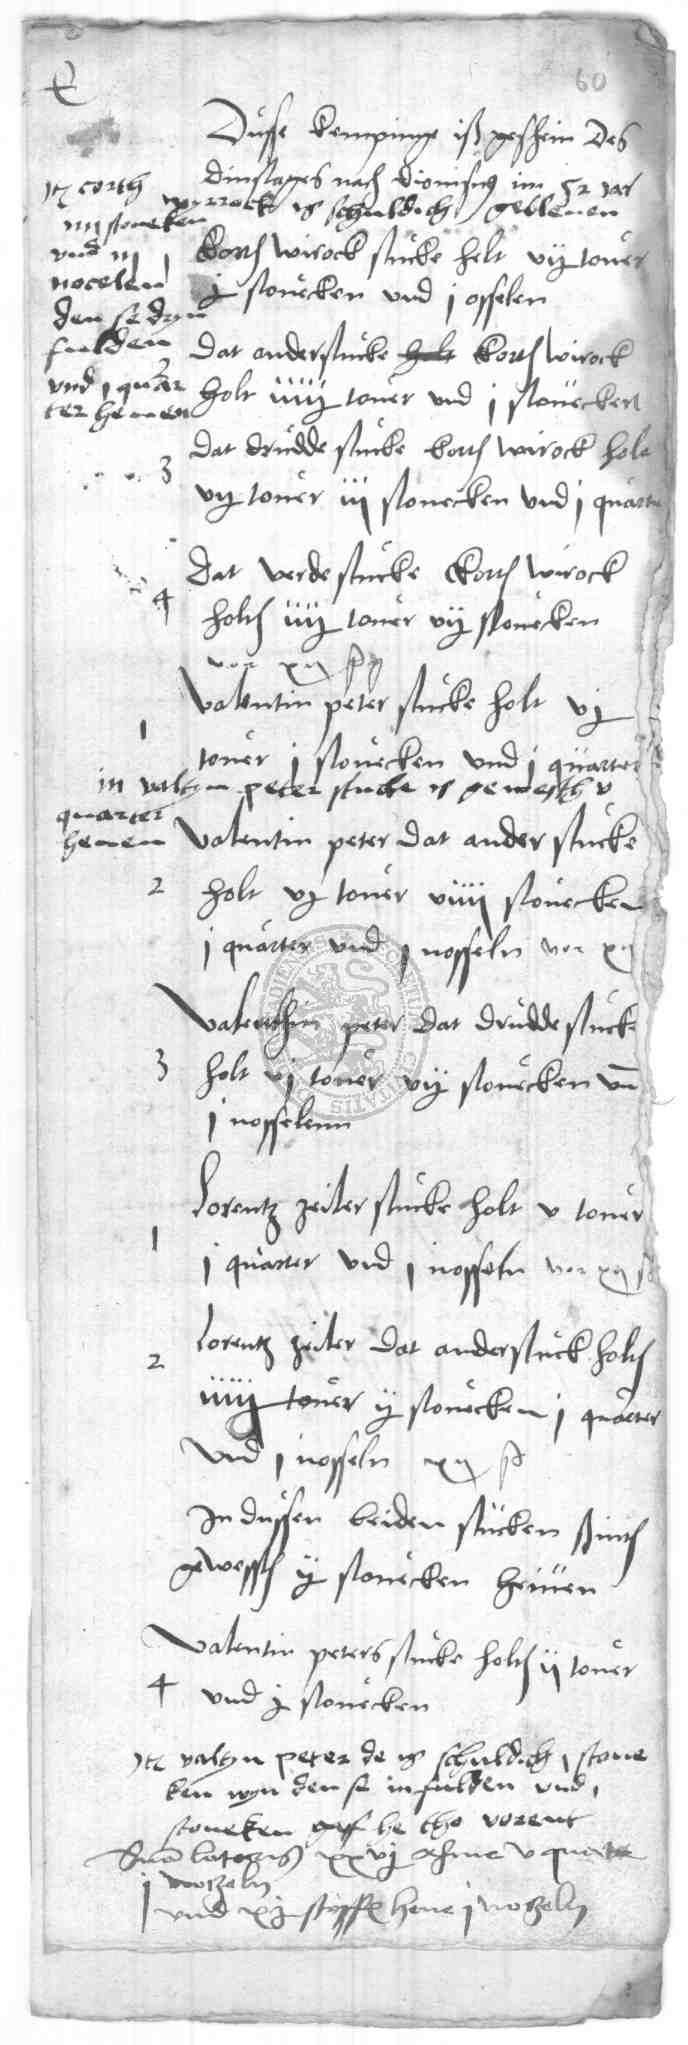 60
Dusse kempinge iß geschein des
dinstages nach dionisius im 52 jar
Jtem corth wyrrock is schuldich gebleuen
iiij stoueken
vnd iij
nocelen
den se dryn
fulden
vnd j quar
ter hemen
Korth wirock stucke helt vij touer
ij stouecken vnd j osselen
2
Dat ander stucke holt korth wirock
holt iiiij touer vnd j stoueken
3
Dat drudde stucke korth wirock holt
vij touer iij stouecken vnd j quarter
4
Dat verde stucke korth wirock
holth iiiij touer vij stouecken
vor
1
Valentin peter stucke holt vj
touer j stouecken vnd j quarter
in valtyn peter stucke is gewesth v
quarter
heuen
Valentin peter dat ander stucke
2
holt vj touer viiij stouecken
j quarter vnd j nosseln vor xij
Valenthin peter dat drudde stuck
3
holt vj touer vij stouecken vn
j nosselenn
1
Lorentz zeiler stucke holt v touer
j quarter vnd j nosseln vor xij
2
Lorentz zeiler dat ander stuck holth
iiiij touer ij stouecken j quarter
vnd j nosseln xij
In dussen beiden stucken ßinth
gewessth ij stouecken heiuen
4
Valentin peters stucke holth ij touer
vnd ij stouecken
Jtem valtyn peter de is schuldich j stoue
ken wyn den se infulden vnd j
stoueken gaf he tho vorent
Summa lateris xxvj ahme v quarter
j notzeln
vnd xij heue j notzeln